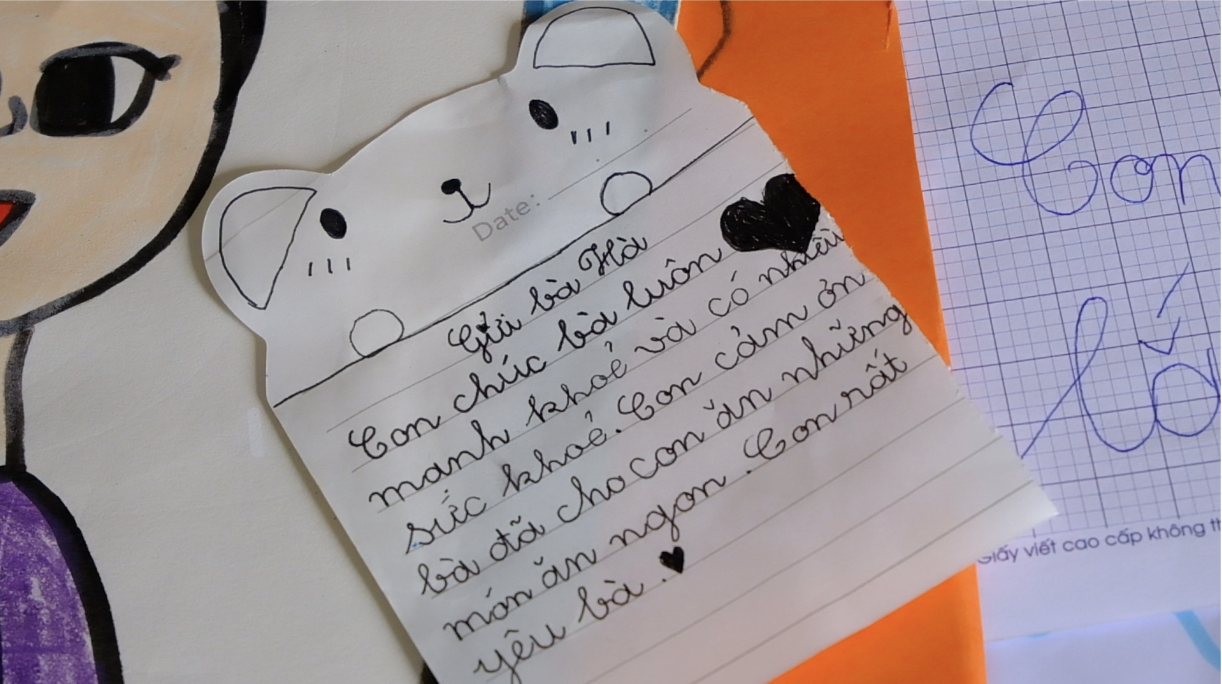 Date:
Gửi bà Hà
Con chúc bà luôn
manh khoẻ và có nhiều
sức khoẻ. Con cảm ơn
bà đã cho con ăn những
món ăn ngon. Con rất
yêu bà.
Con
Giấy viết cao cấp không